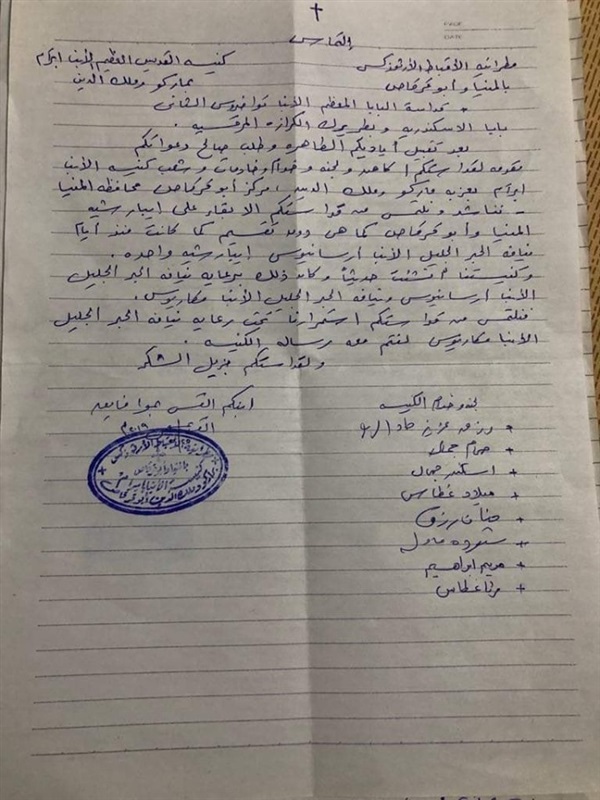 إلتماس
مطرانية الأقباط الأرثوذكس
بالمنيا وأبوقرقاص
كنيسة القديس العظيم الأنبا ابرآم
بماركو وملك الدين
+ قداسة البابا المعظم الأنبا تواضروس الثانى
بابا الاسكندرية وبطريرك الكرازة المرقسية .
بعد تقبيل أياديكم الطاهرة وطلب صالح دعواتكم
مقدمه لقداستكم / كاهن ولجنة وخدام وخادمات وشعب كنيسة الأنبا
ابرآم بعزبة ماركو وملك الدين مركز أبوقرقاص محافظة المنيا
- نناشد ونلتمس من قداستكم الابقاء على ايبارشية
المنيا وأبوقرقاص كما هى دون تقسيم كما كانت منذ أيام
نيافة الحبر الجليل الأنبا أرسانيوس ايبارشية واحدة .
وكنيستنا أنشئت حديثاً وكان ذلك برعاية نيافة الحبر الجليل
الأنبا أرسانيوس ونيافة الحبر الجليل الأنبا مكاريوس .
فنلتمس من قداستكم استمرارنا تحت رعاية نيافة الحبر الجليل
الأنبا مكاريوس لنتم معه رسالة الكنيسة .
ولقداستكم جزيل الشكر
ابنكم القس
لجنة وخدام الكنيسة
+ عزيز
+ جمال
+ اسكندر جمال
+ ميلاد غطاس
+ حنان رزق
+
+ مريم ابراهيم
+ غطاس